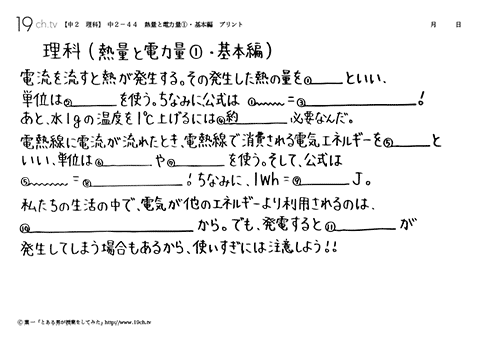 19ch.tv 【中2 理科】 中2-44 熱量と電力量①・基本編 プリント 月 日
理科(熱量と電力量①・基本編)
電流を流すと熱が発生する。その発生した熱の量を①______といい、
単位は②______を使う。ちなみに公式は ①〰〰 = ③____________!
あと、水1gの温度を1℃上げるには④約________必要なんだ。
電熱線に電流が流れたとき、電熱線で消費される電気エネルギーを⑤______と
いい、単位は⑥______や⑦______を使う。そして、公式は
⑤〰〰 = ⑧__________!ちなみに、1Wh=⑨______J。
私たちの生活の中で、電気が他のエネルギーより利用されるのは、
⑩__________________から。でも、発電すると⑪________が
発生してしまう場合もあるから、使いすぎには注意しよう!!
© 葉一「とある男が授業をしてみた」 http://www.19ch.tv